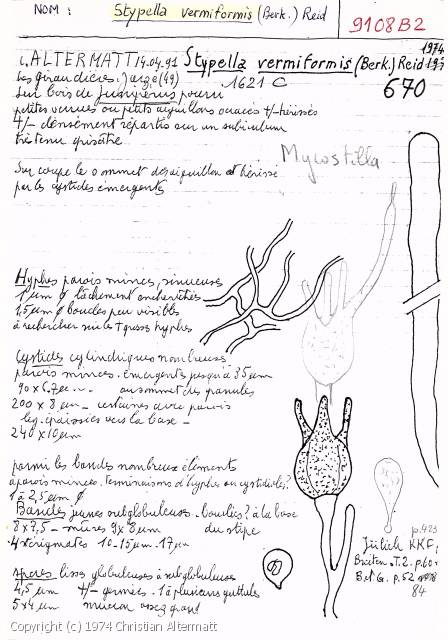 NOM : Stypella vermiformis (Berk.) Reid
9108B2
1974
C. ALTERMATT 14.04.91 Stypella vermiformis (Berk.) Reid
Les giraudières. Jarzé (49) 1621 C
670
Sur bois de Juniperus pourri
petites verrues ou petits aiguillons +/- hérissés
+/- densément répartis sur un subiculum
très tenu grisâtre
Mycostilla
Sur coupe le sommet des aiguillons est hérissé
par les cystides émergents
Hyphes parois minces, sinueuses
1 µm ø lâchement enchevêtrées
1,5 µm ø boucles peu visibles
à rechercher sur les + grosses hyphes
Cystides cylindriques nombreuses
parois minces. émergents jusqu'à 35 µm
90 x 6,7 au sommet des granules
200 x 8 µm - certaines avec parois
leg. épaissies vers la base -
240 x 10 µm
parmi les basides nombreux éléments
à parois minces. Terminaisons d'hyphes ou cystidioles?
1 à 2,5 µm ø
Basides jeunes subglobuleuses. bouclées? à la base
8 x 7,5 - mûres 9 x 8 µm du stipe
4 stérigmates 10-15 µm. 17 µm
p. 423
Jülich KKF,
Breiten. T.2. p. 60
B et G. p. 52
84
Spores lisses globuleuses à subglobuleuses
4,5 µm +/- germées. 1 à plusieurs guttules
5 x 4 µm mucron assez grand
Copyright (c) 1974 Christian Altermatt